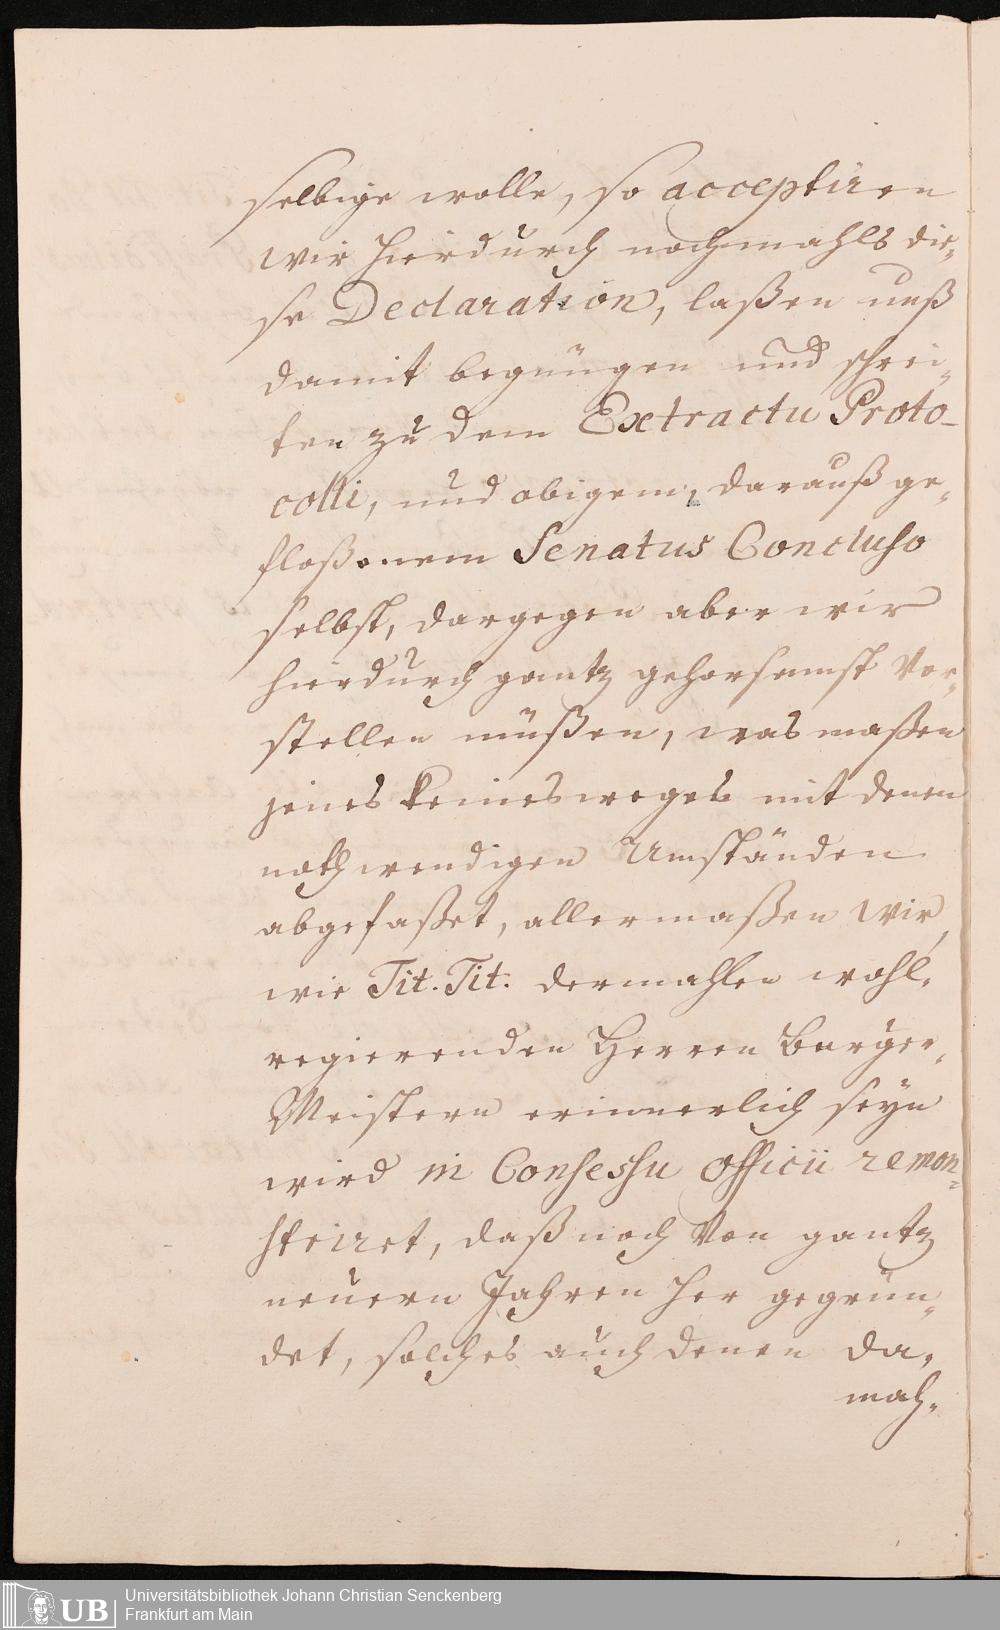 selbige wolle, so acceptiren
wir hierdurch nochmahls die-
se Declaration, laßen unß
damit begnügen und schrei-
ten zu dem Extractu Proto-
colli, und obigem, darauß ge-
floßenem Senatus Concluso
selbst, dargegen aber wir
hierdurch gantz gehorsamst vor-
stellen müßen, was maßen
jenes keinesweges mit denen
nothwendigen Umständen
abgefaßet, allermaßen wir,
wie Tit. Tit. dermahlen wohl-
regierenden Herren Burger-
Meistern erinnerlich seyn
wird in Consessu officii remon-
striret, daß noch von gantz
neuern Jahren her gegrün-
det, solches auch denen da-
mah-
Universitätsbibliothek Johann Christian Senckenberg
Frankfurt am Main
UB